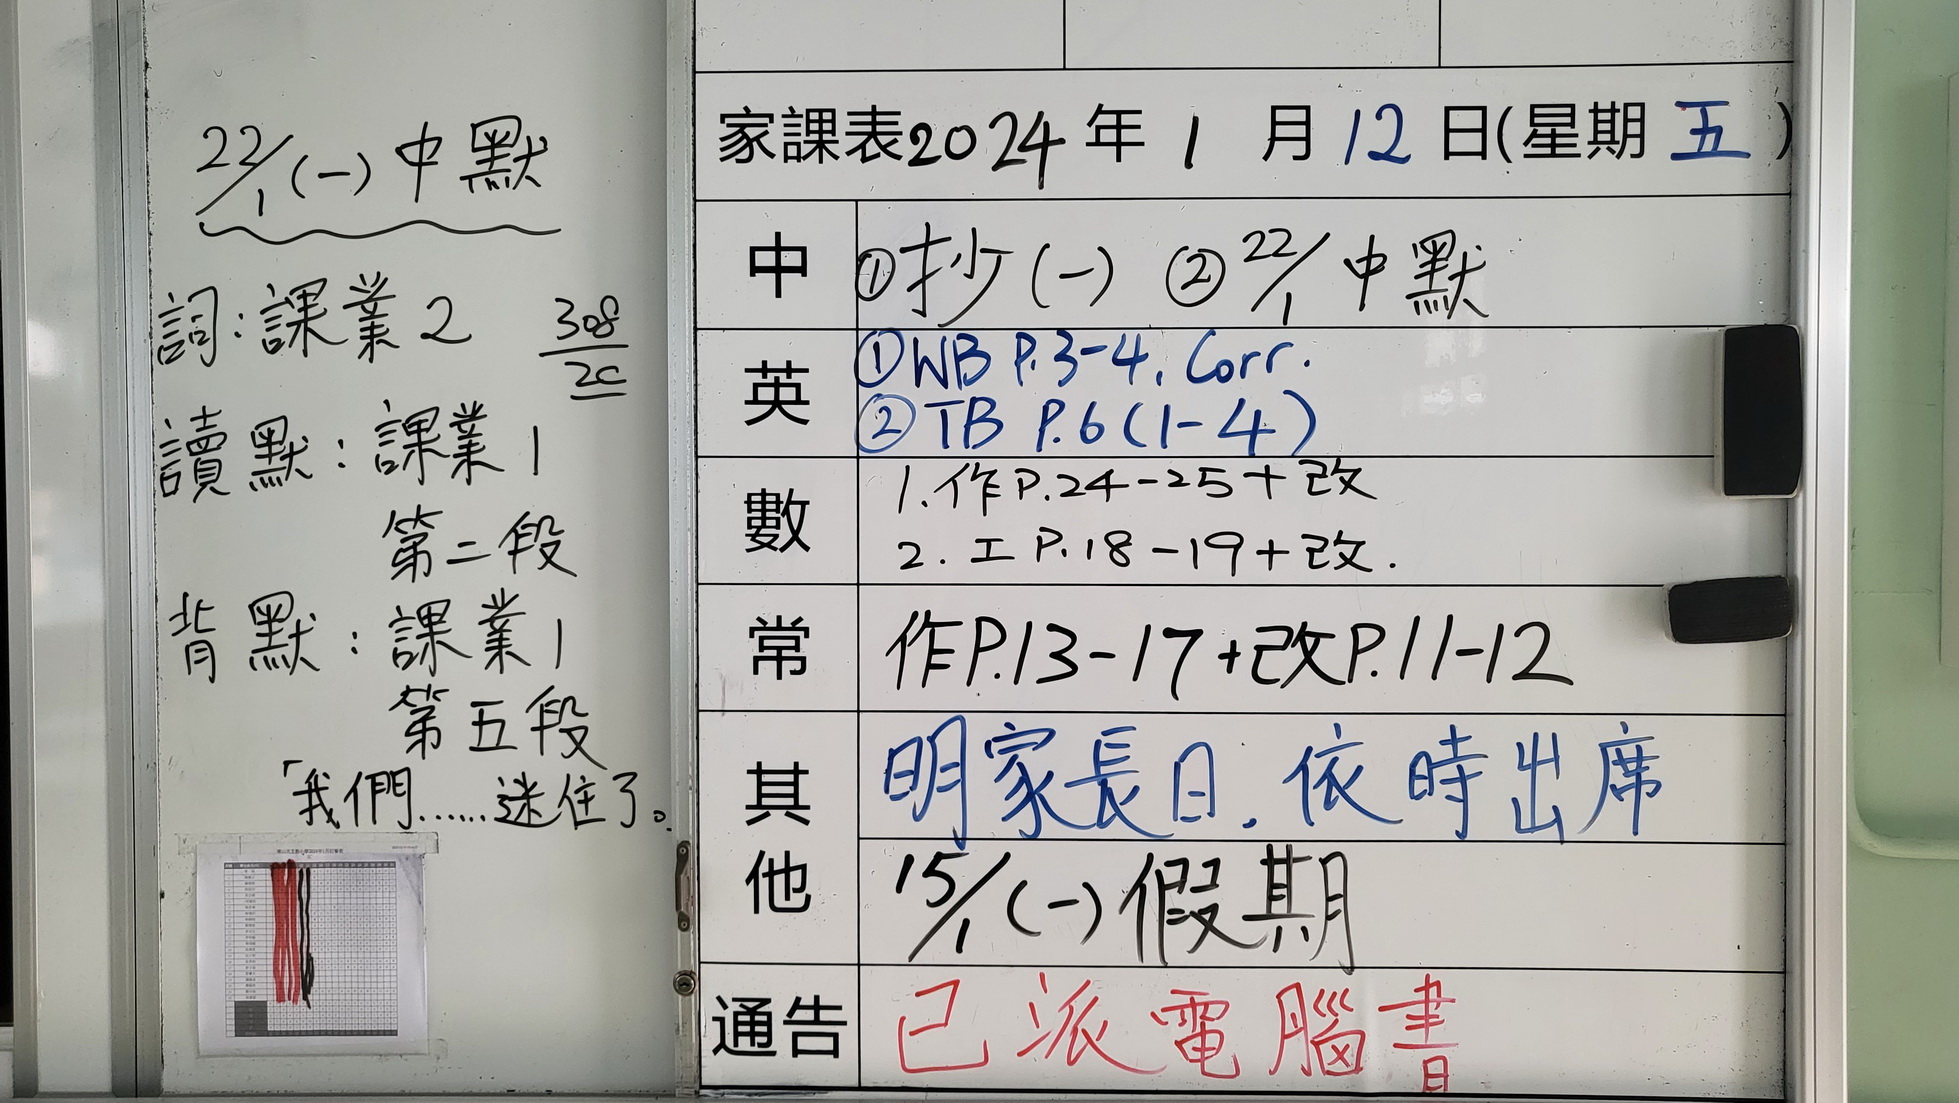 22/1(一)中默
詞:課業2
308
2C
讀默:課業1
第二段
背默:課業1
第五段
「我們……迷住了。
家課表2024年1月12日(星期五)
中 ①抄(一) ②22/1中默
英 ①WB P.3-4. Corr.
②TB P.6(1-4)
數 1.作P.24-25+改
2.工P.18-19+改.
常 作P.13-17+改P.11-12
其他 明家長日.依時出席
15/1(一)假期
通告 已派電腦書